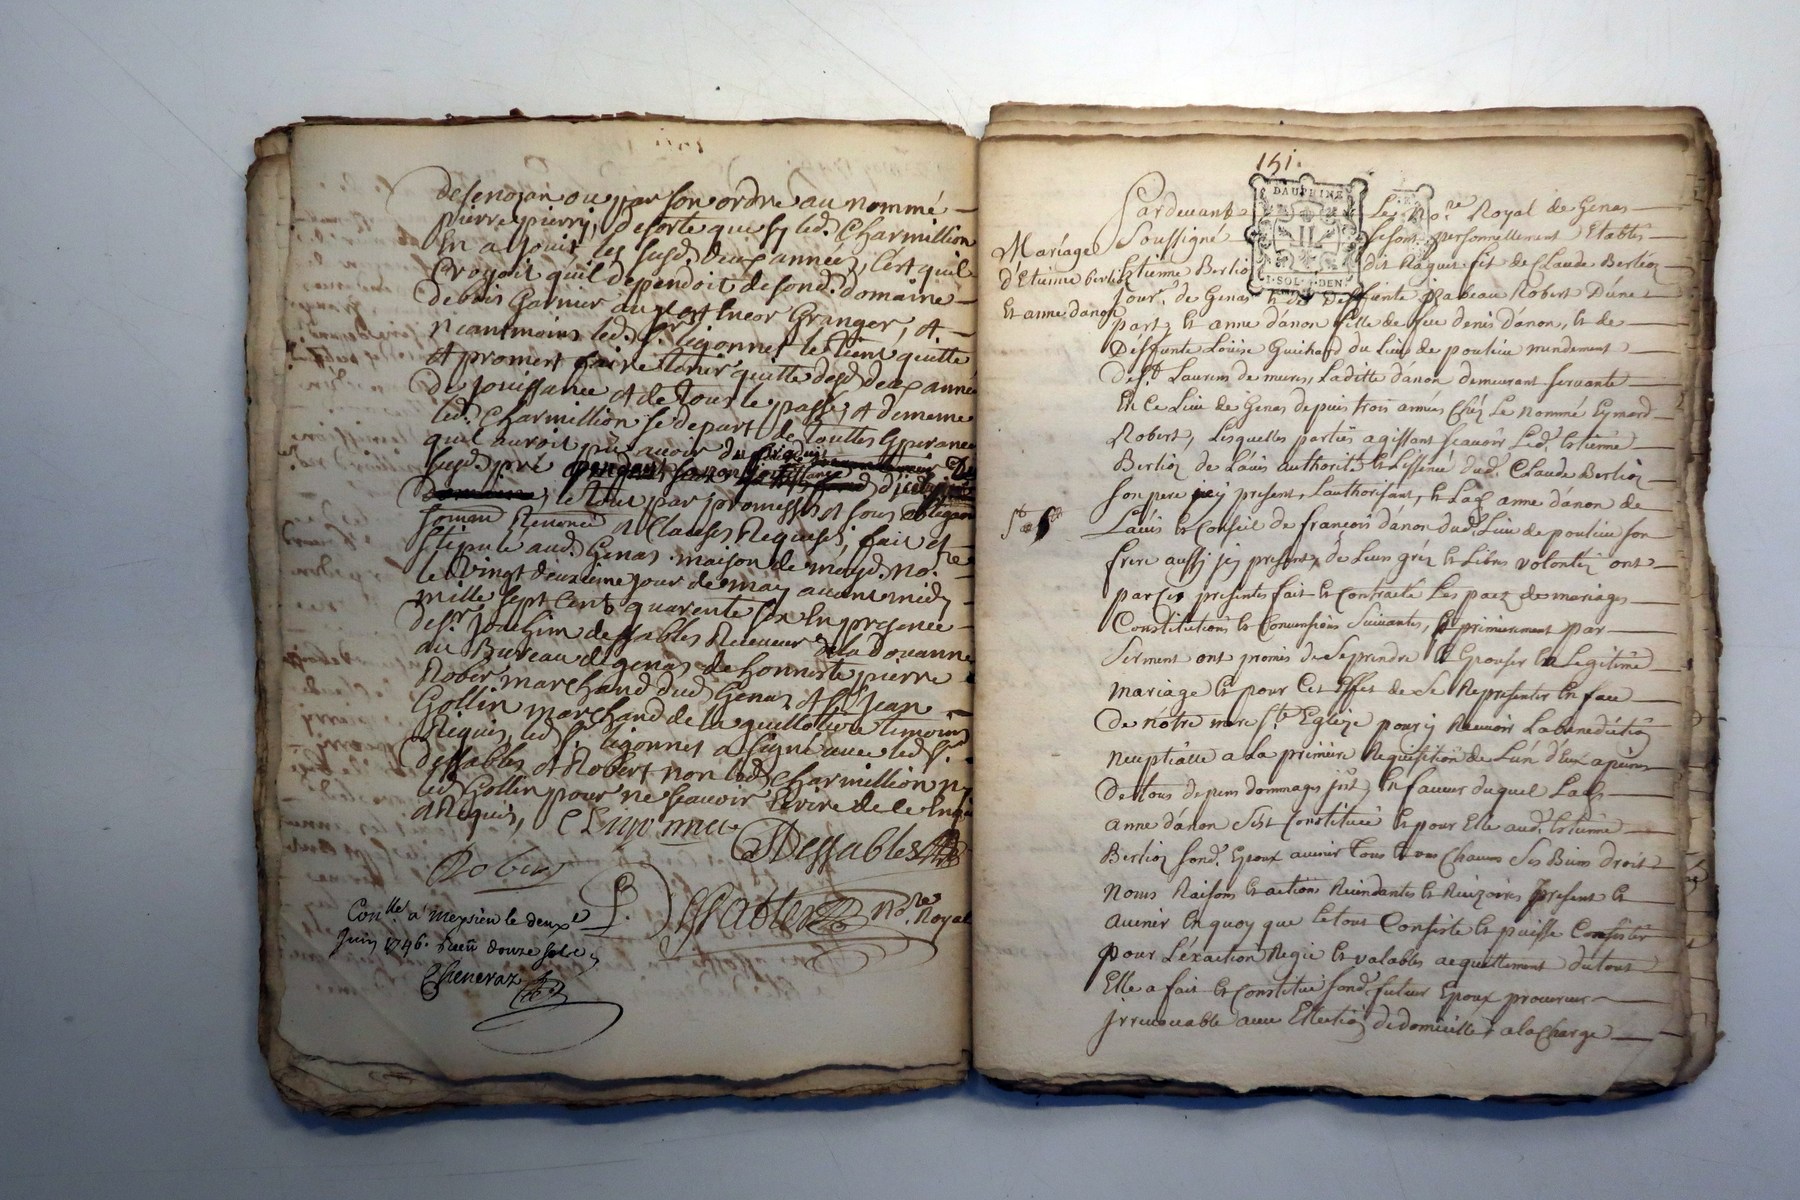 de senozan ou par son ordre au nommé
pierre pierry, desorte que sy led. Charmillion
En a jouit les susd. deux années, C'est quil
Croyoit quil dependoit de sond. domaine
neantmoins led. Sr. ligonnet le tient quitte
Et promet faire tenir quitte desd. deux année
De jouissance et de tout le passé, et dememe
led. Charmillion se depart de touttes Esperance
quil auroit pu avoir du
susd. pré
le tout par promesses et sous
Renoncé et Clauses Requises, fait et
stipulé aud. Genas maison de moyd. no.re
le vingt deuxieme jour de may avant midy
mille sept Cent quarente six En presence
de sr. Joachim dessables Receveur
au Bureau de genas de la douanne
Robert marchand dud. Genas, et Sr. Jean
Gollin marchand de la guillotiere temoins
Requis, led. Sr. ligonnet a signé avec led. Sr.
dessables et Robert non led. Charmillion ny
led. Gollin pour ne scavoir Ecrire de ce Enq
et Requis,
Dessables
Robert
Dessables No.re Royal
Con.llé a meysieu le deux.e
Juin 1746. Receu douze sols
Cheneraz
151.
DAUPHINE
I·SOL·DEN
Pardevant Le No.re Royal de Genas
Soussigné se sont personnellement Etablis
Mariage
d'Etienne Berlioz
Et anne danon
Etienne Berlioz dit Raquet fils de Claude Berlioz
Jour.r de Genas Et de Deffunte Izabeau Robert D'une
part, Et anne danon fille de feu denis danon, Et de
Deffunte Loüise Guichard du Lieu de poulieu mandement
de St. Laurens de mures, Laditte danon demeurant servante
En Ce Lieu de Genas depuis trois années Chés Le nommé Eymard
Robert, Lesquelles parties agissant scavoir Led. Estienne
Berlioz de L'avis authorité Et Licence dud. Claude Berlioz
son pere icy present, L'authorisant, Et Lad. anne danon de
L'avis Et Conseil de françois danon dud. Lieu de poulieu son
frere aussy icy present, de Leurs gréz Et Libres volontéz ont
par Ces presentes fait Et Contracté Les pacz de mariages
Constitutions Et Conventions Suivantes, Et premierement par
Serment ont promis de Se prendre Et Epouser En Legitime
mariage Et pour Cet Effet de Se Representer En face
De nôtre mere Ste. Eglize pour y Recevoir La benediction
neuptialle a La premiere Requisition de L'un d'Eux a peine
De tous depens dommages jnt. En faveur duquel Lad.
anne danon S'est Constituée Et pour Elle aud. Estienne
Berlioz sond. Epoux avenir Tous Et uns Chacuns Ses Biens droits
Noms Raisons Et actions Recindantes Et Recizoires present Et
avenir En quoy que Le tout Consiste Et puisse Consister
pour L'exaction Regie Et valables acquittement du tout
Elle a fait Et Constitué sond. futur Epoux procureur
jrrevocable avec Ellection de domicille, a la Charge